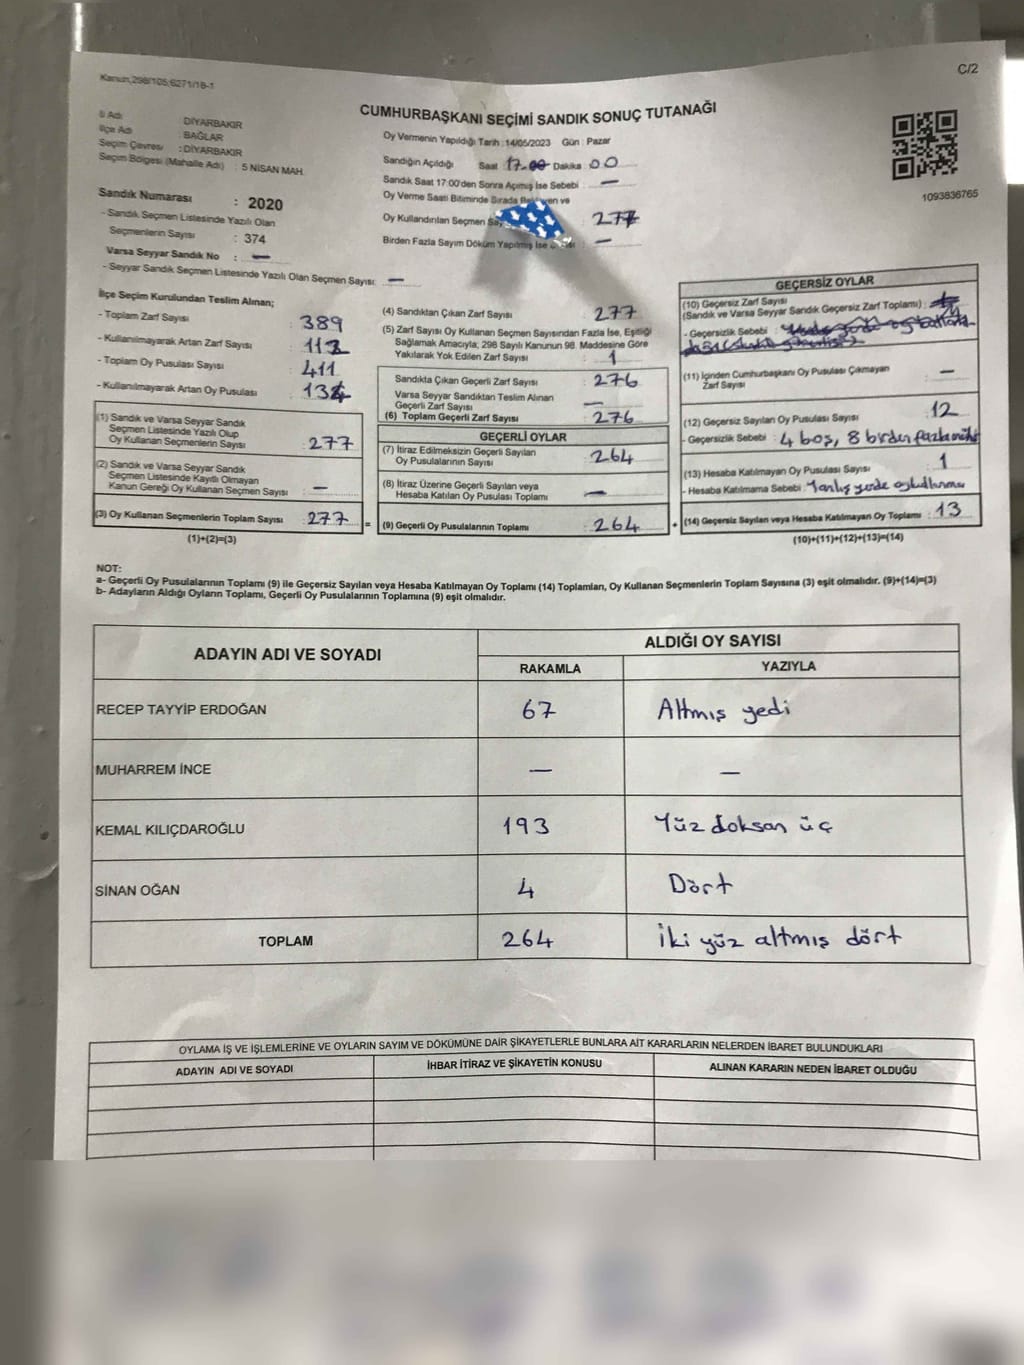 Kanun;298/105;6271/18-1
C/2
CUMHURBAŞKANI SEÇİMİ SANDIK SONUÇ TUTANAĞI
İl Adı : DİYARBAKIR
İlçe Adı : BAĞLAR
Seçim Çevresi : DİYARBAKIR
Seçim Bölgesi (Mahalle Adı) : 5 NİSAN MAH.
Oy Vermenin Yapıldığı Tarih :14/05/2023 Gün : Pazar
Sandığın Açıldığı Saat 17.00 Dakika : 00
Sandık Saat 17:00'den Sonra Açımış İse Sebebi : —
Oy Verme Saati Bitiminde Sırada ve
Oy Kullandırılan Seçmen : 277
Birden Fazla Sayım Döküm Yapılmış İse : —
1093836765
Sandık Numarası : 2020
- Sandık Seçmen Listesinde Yazılı Olan
Seçmenlerin Sayısı : 374
Varsa Seyyar Sandık No : —
- Seyyar Sandık Seçmen Listesinde Yazılı Olan Seçmen Sayısı: —
İlçe Seçim Kurulundan Teslim Alınan;
- Toplam Zarf Sayısı : 389
- Kullanılmayarak Artan Zarf Sayısı :
- Toplam Oy Pusulası Sayısı : 411
- Kullanılmayarak Artan Oy Pusulası :
(1) Sandık ve Varsa Seyyar Sandık
Seçmen Listesinde Yazılı Olup
Oy Kullanan Seçmenlerin Sayısı : 277
(2) Sandık ve Varsa Seyyar Sandık
Seçmen Listesinde Kayıtlı Olmayan
Kanun Gereği Oy Kullanan Seçmen Sayısı : —
(3) Oy Kullanan Seçmenlerin Toplam Sayısı : 277
(1)+(2)=(3)
=
(4) Sandıktan Çıkan Zarf Sayısı : 277
(5) Zarf Sayısı Oy Kullanan Seçmen Sayısından Fazla İse, Eşitliği
Sağlamak Amacıyla; 298 Sayılı Kanunun 98. Maddesine Göre
Yakılarak Yok Edilen Zarf Sayısı : 1
Sandıkta Çıkan Geçerli Zarf Sayısı : 276
Varsa Seyyar Sandıktan Teslim Alınan
Geçerli Zarf Sayısı : —
(6) Toplam Geçerli Zarf Sayısı : 276
GEÇERLİ OYLAR
(7) İtiraz Edilmeksizin Geçerli Sayılan
Oy Pusulalarının Sayısı : 264
(8) İtiraz Üzerine Geçerli Sayılan veya
Hesaba Katılan Oy Pusulası Toplamı : —
(9) Geçerli Oy Pusulalarının Toplamı : 264
+
GEÇERSİZ OYLAR
(10) Geçersiz Zarf Sayısı
(Sandık ve Varsa Seyyar Sandık Geçersiz Zarf Toplamı) :
- Geçersizlik Sebebi :
(11) İçinden Cumhurbaşkanı Oy Pusulası Çıkmayan
Zarf Sayısı : —
(12) Geçersiz Sayılan Oy Pusulası Sayısı : 12
- Geçersizlik Sebebi : 4 boş, 8 birden fazla
(13) Hesaba Katılmayan Oy Pusulası Sayısı : 1
- Hesaba Katılmama Sebebi : Yanlış yerde
(14) Geçersiz Sayılan veya Hesaba Katılmayan Oy Toplamı : 13
(10)+(11)+(12)+(13)=(14)
NOT:
a- Geçerli Oy Pusulalarının Toplamı (9) ile Geçersiz Sayılan veya Hesaba Katılmayan Oy Toplamı (14) Toplamları, Oy Kullanan Seçmenlerin Toplam Sayısına (3) eşit olmalıdır. (9)+(14)=(3)
b- Adayların Aldığı Oyların Toplamı, Geçerli Oy Pusulalarının Toplamına (9) eşit olmalıdır.
ADAYIN ADI VE SOYADI
ALDIĞI OY SAYISI
RAKAMLA YAZIYLA
RECEP TAYYİP ERDOĞAN 67 Altmış yedi
MUHARREM İNCE — —
KEMAL KILIÇDAROĞLU 193 Yüz doksan üç
SİNAN OĞAN 4 Dört
TOPLAM 264 İki yüz altmış dört
OYLAMA İŞ VE İŞLEMLERİNE VE OYLARIN SAYIM VE DÖKÜMÜNE DAİR ŞİKAYETLERLE BUNLARA AİT KARARLARIN NELERDEN İBARET BULUNDUKLARI
ADAYIN ADI VE SOYADI İHBAR İTİRAZ VE ŞİKAYETİN KONUSU ALINAN KARARIN NEDEN İBARET OLDUĞU